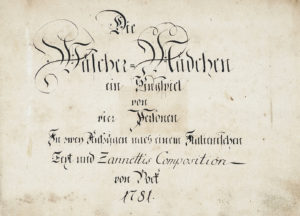 Die
Wäscher=Mädchen
ein Singspiel
von
vier Personen
In zwey Aufzügen nach einem Italienischen
Text und Zannettis Composition —
von Bock
1781.